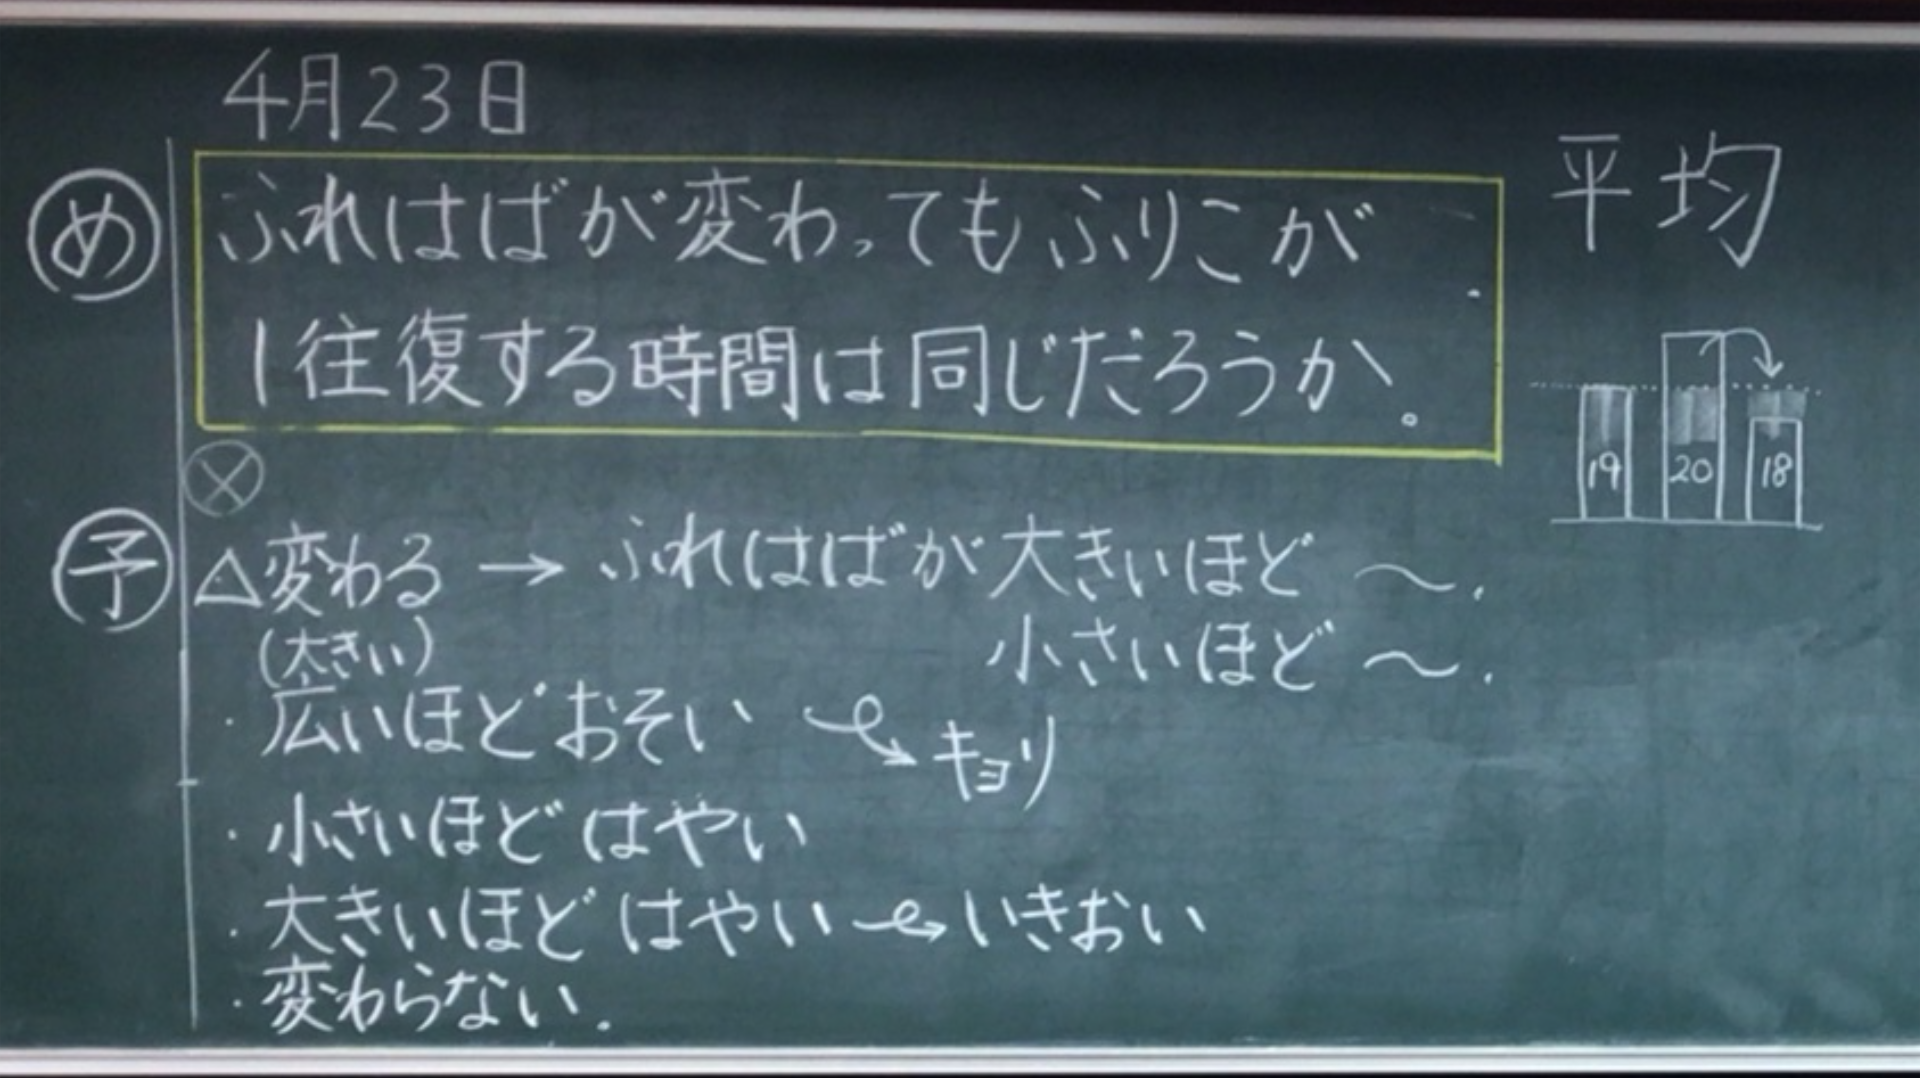 4月23日
め
ふれはばが変わってもふりこが
1往復する時間は同じだろうか。
予
△変わる → ふれはばが大きいほど 〜.
小さいほど 〜.
(大きい)
・広いほどおそい → キョリ
・小さいほどはやい
・大きいほどはやい → いきおい
・変わらない.
平均
19 20 18